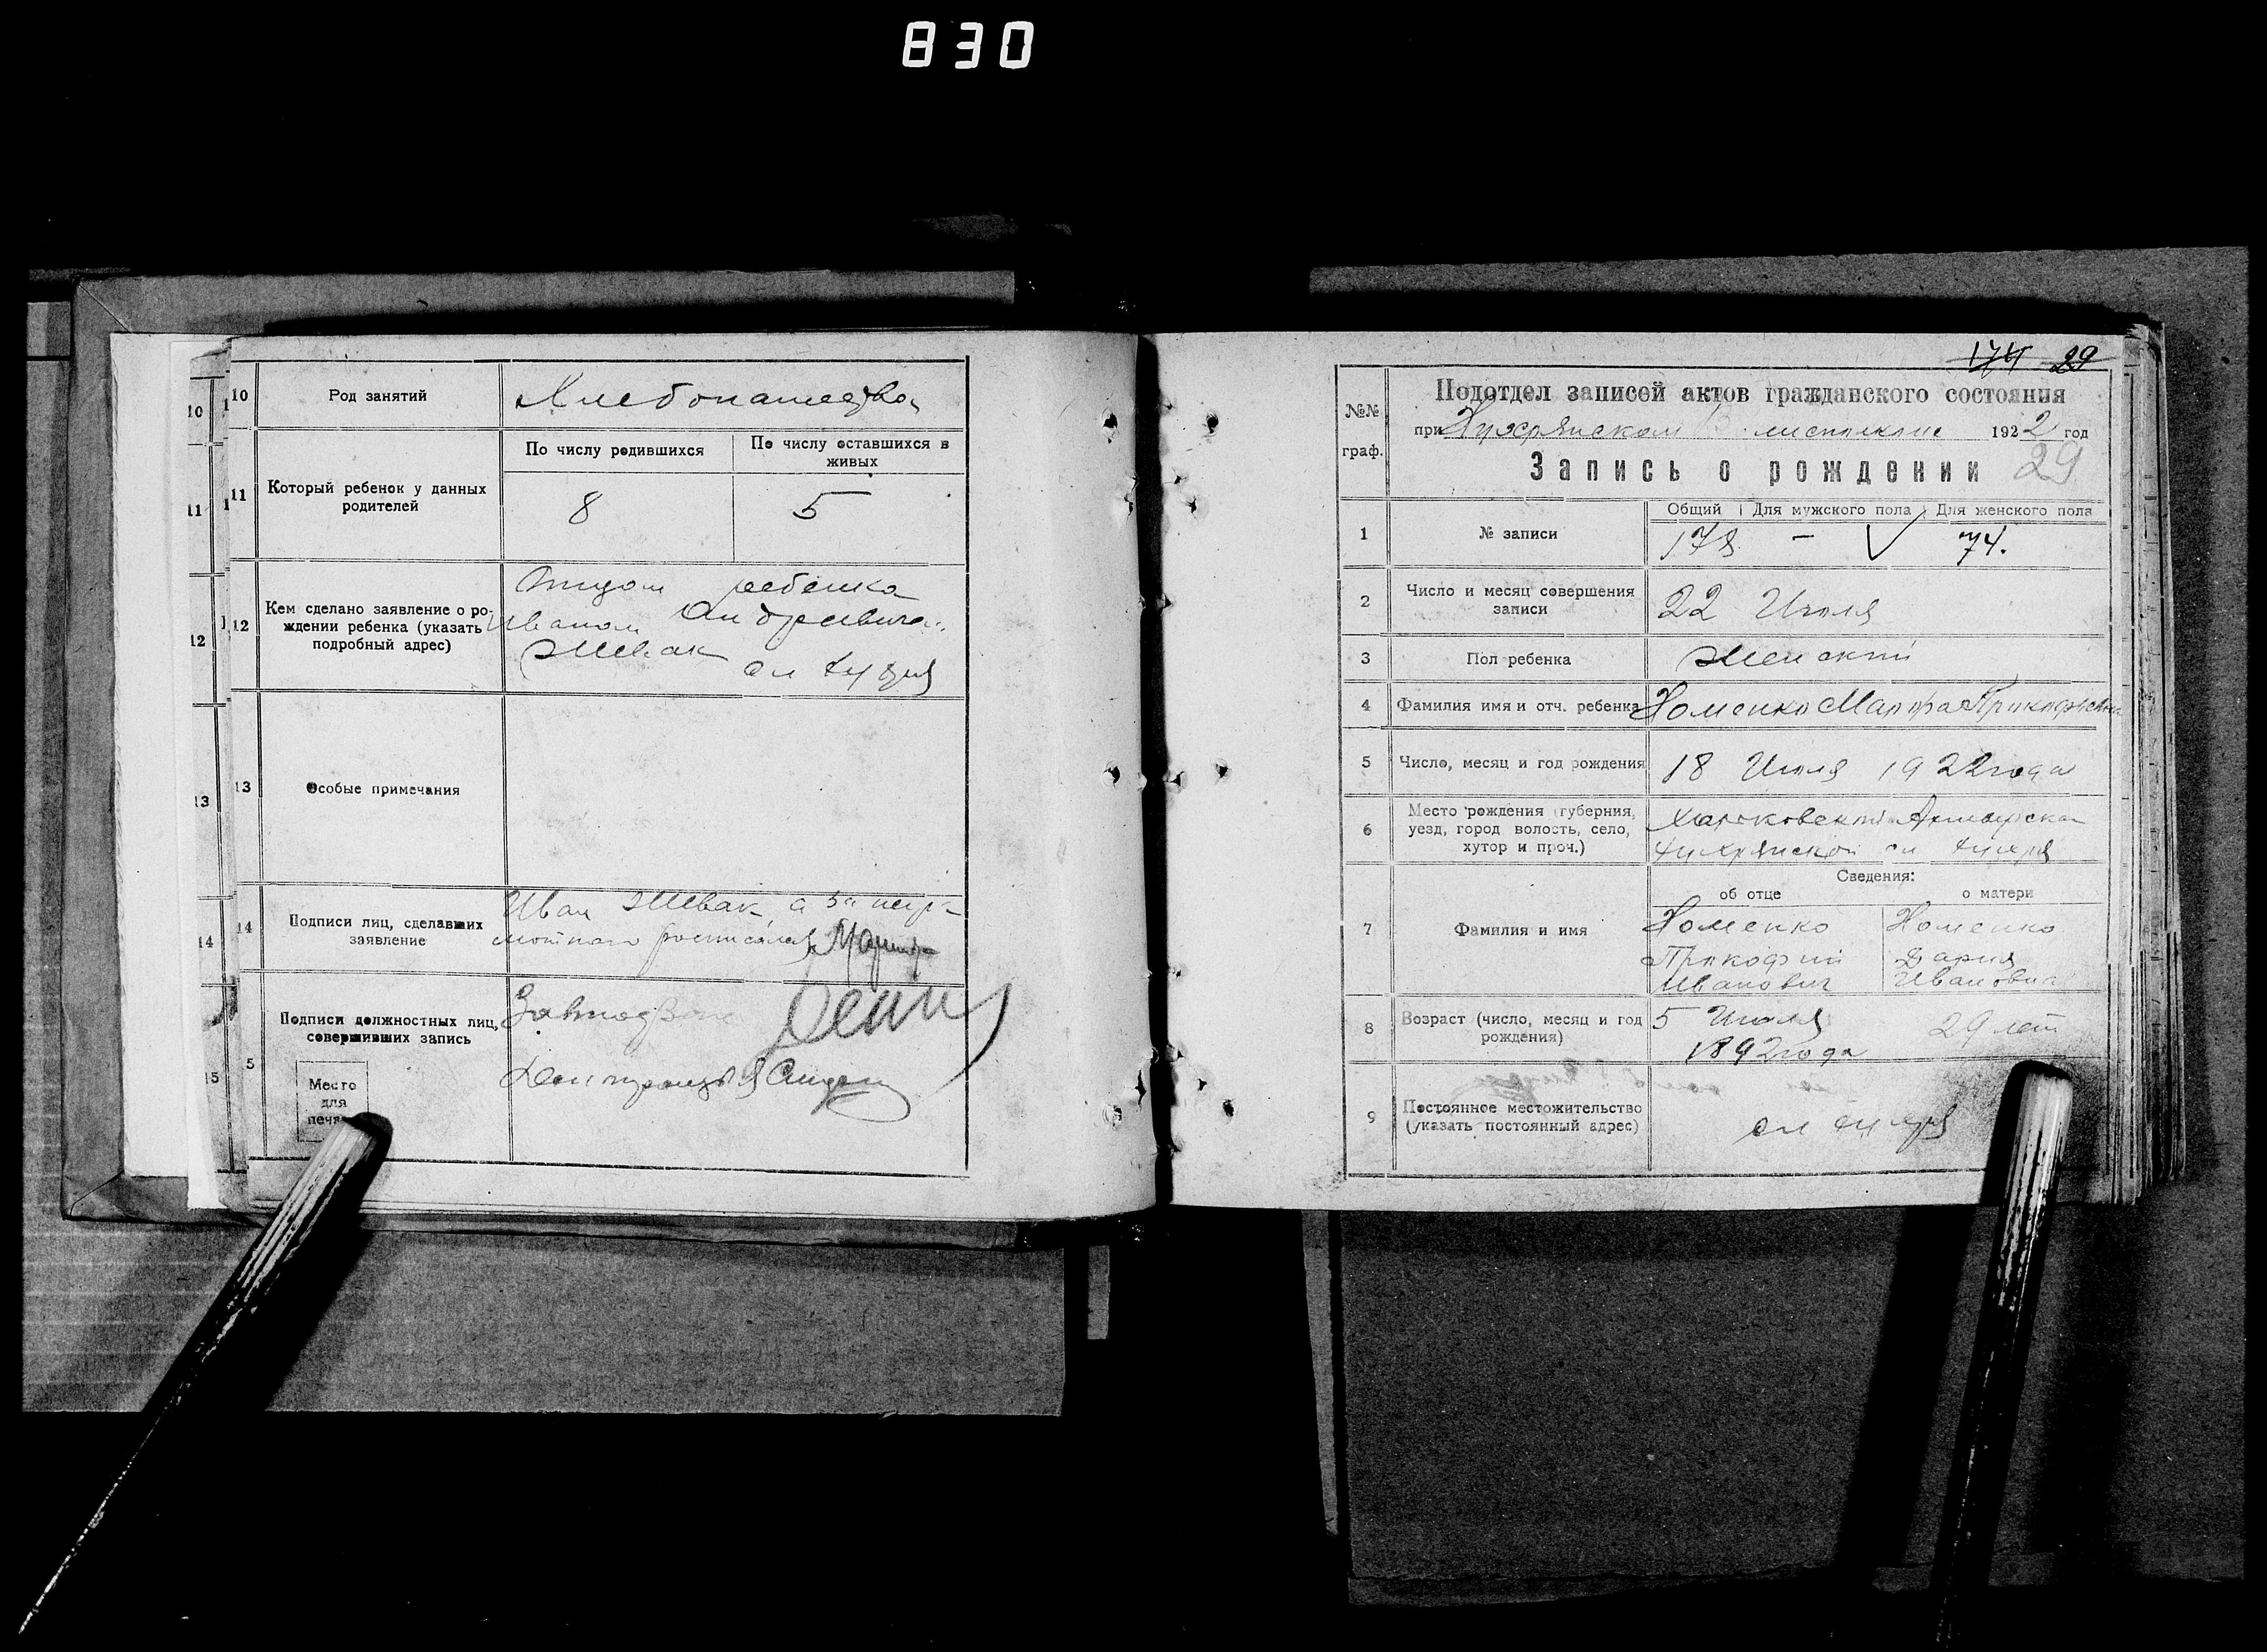 830
10
Род занятий
Хлебопашество
11
Который ребенок у данных
родителей
По числу родившихся
По числу оставшихся в
живых
8
5
12
Кем сделано заявление о ро-
ждении ребенка (указать
подробный адрес)
Отцом ребенка
Иваном Андреевича
Шевак
13
Особые примечания
14
Подписи лиц, сделавших
заявление
Иван Шевак, а за негра-
мотного росписался
5
Подписи должностных лиц,
совершивших запись
Место
для
печа
10
11
12
13
14
15
29
№№
граф.
Подотдел записей актов гражданского состояния
при 1922 год
Запись о рождении 29
1
№ записи
Общий
Для мужского пола
Для женского пола
178 - 74.
2
Число и месяц совершения
записи
22 Июля
3
Пол ребенка
Женский
4
Фамилия имя и отч. ребенка
Хоменко Марфа Прокофьевна
5
Число, месяц и год рождения
18 Июля 1922 года
6
Место рождения (губерния,
уезд, город волость, село,
хутор и проч.)
Харьковской
7
Фамилия и имя
Сведения:
об отце
о матери
Хоменко
Прокофий
Иванович
Хоменко
Дария
8
Возраст (число, месяц и год
рождения)
5 Июля
1892 года
29 лет
9
Постоянное местожительство
(указать постоянный адрес)